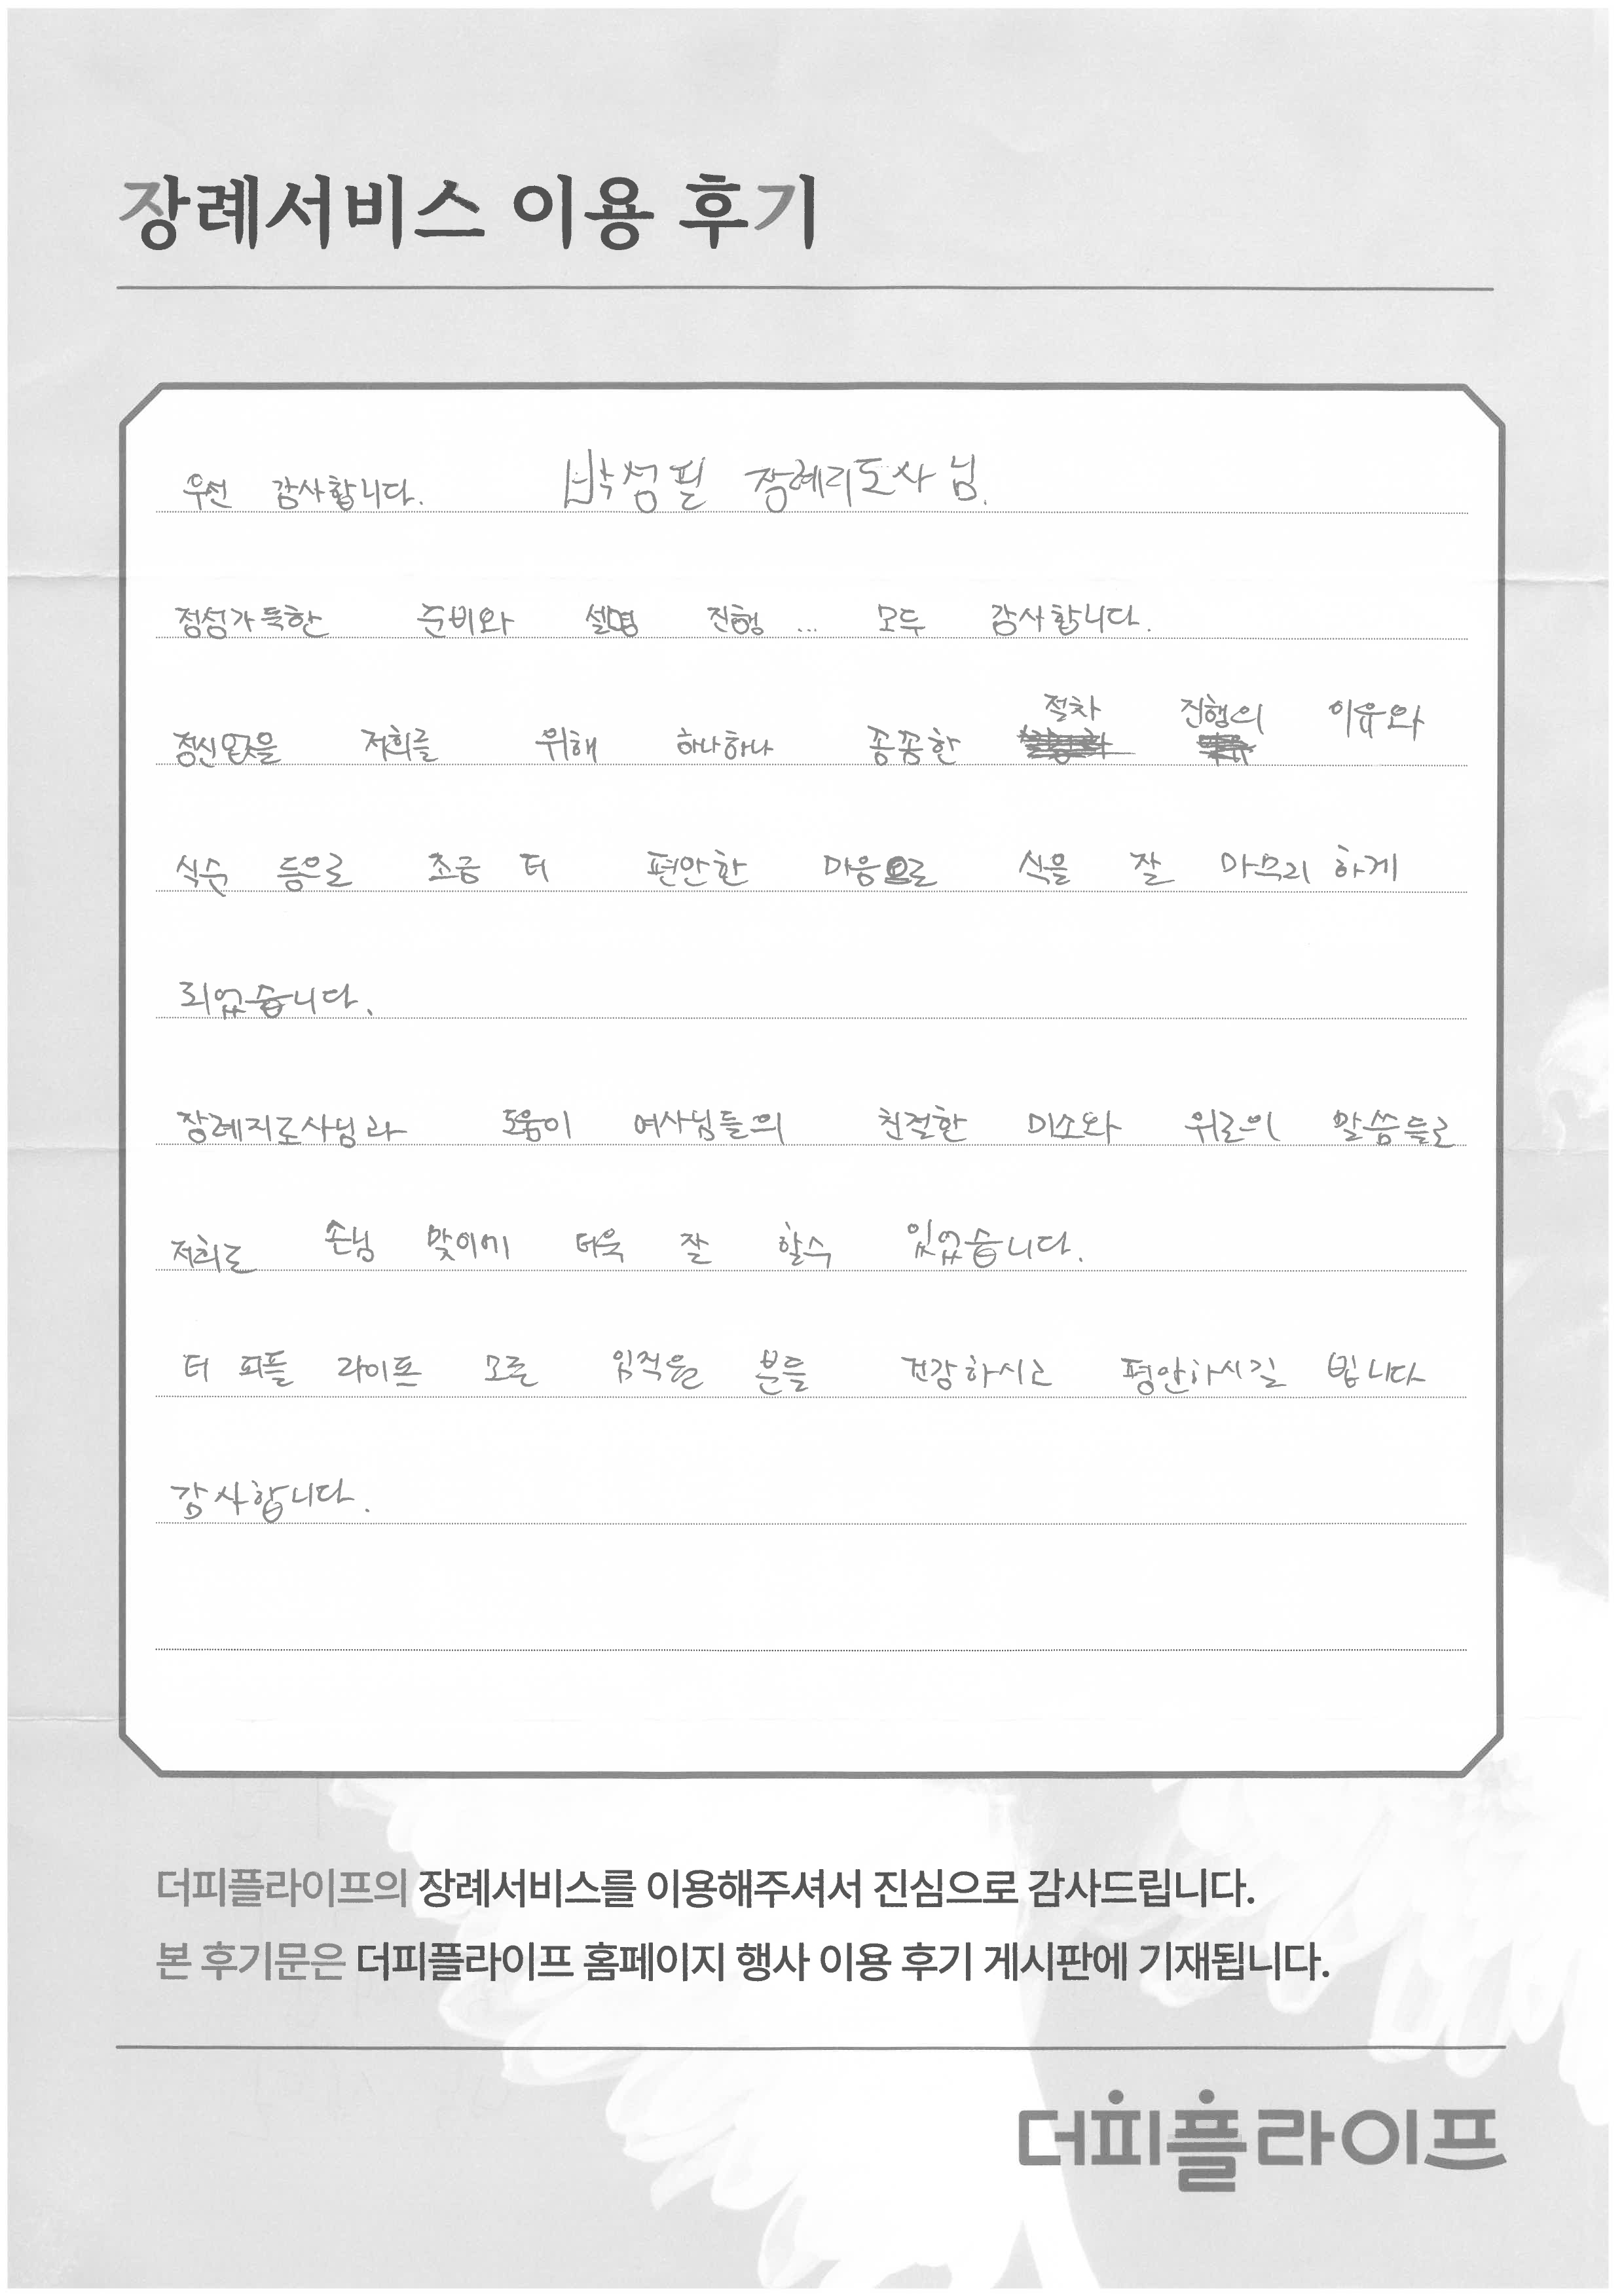 장례서비스 이용 후기
우선 감사합니다. 박성필 장례지도사님.
정성가득한 준비와 설명 진행 ... 모두 감사합니다.
정신없을 저희를 위해 하나하나 꼼꼼한 절차 진행의 이유와
식순 등으로 조금 더 편안한 마음으로 식을 잘 마무리하게
되었습니다.
장례지도사님과 도움이 여사님들의 친절한 미소와 위로의 말씀들로
저희도 손님 맞이에 더욱 잘 할수 있었습니다.
더 피플 라이프 모든 임직원 분들 건강하시고 평안하시길 빕니다
감사합니다.
더피플라이프의 장례서비스를 이용해주셔서 진심으로 감사드립니다.
본 후기문은 더피플라이프 홈페이지 행사 이용 후기 게시판에 기재됩니다.
더피플라이프